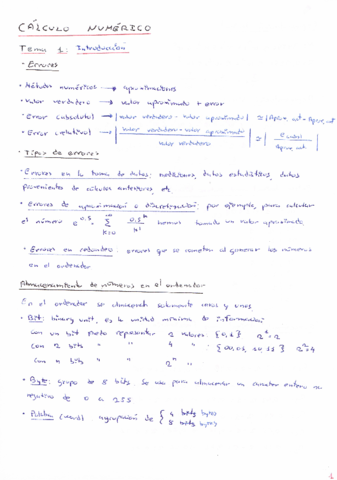 CÁLCULO NUMÉRICO
Tema 1: Introducción
· Errores
· Métodos numéricos → aproximaciones
· Valor verdadero → valor aproximado + error
· Error (absoluto) → | valor verdadero - valor aproximado | ≃ |
· Error (relativo) → | valor verdadero - valor aproximado / valor verdadero | ≃ |
· Tipos de errores
· Errores en la toma de datos: mediciones, datos estadísticos, datos
provenientes de cálculos anteriores, etc.
· Errores de aproximación o discretización: por ejemplo, para calcular
el número e^0.5 = Σ 0.5^k / k! hemos tomado un valor aproximado.
· Errores en redondeo: errores que se cometen al generar los números
en el ordenador
Almacenamiento de números en el ordenador
En el ordenador se almacenan solamente ceros y unos
· Bit: binary unit, es la unidad mínima de información
con un bit puedo representar 2 valores {0,1} 2^1=2
con 2 bits " " 4 " {00,01,10,11} 2^2=4
con n bits " " 2^n "
· Byte: grupo de 8 bits. Se usa para almacenar un carácter entero no
negativo de 0 a 255
· Palabra (word) agrupación de { 4 bytes
8 bytes
1